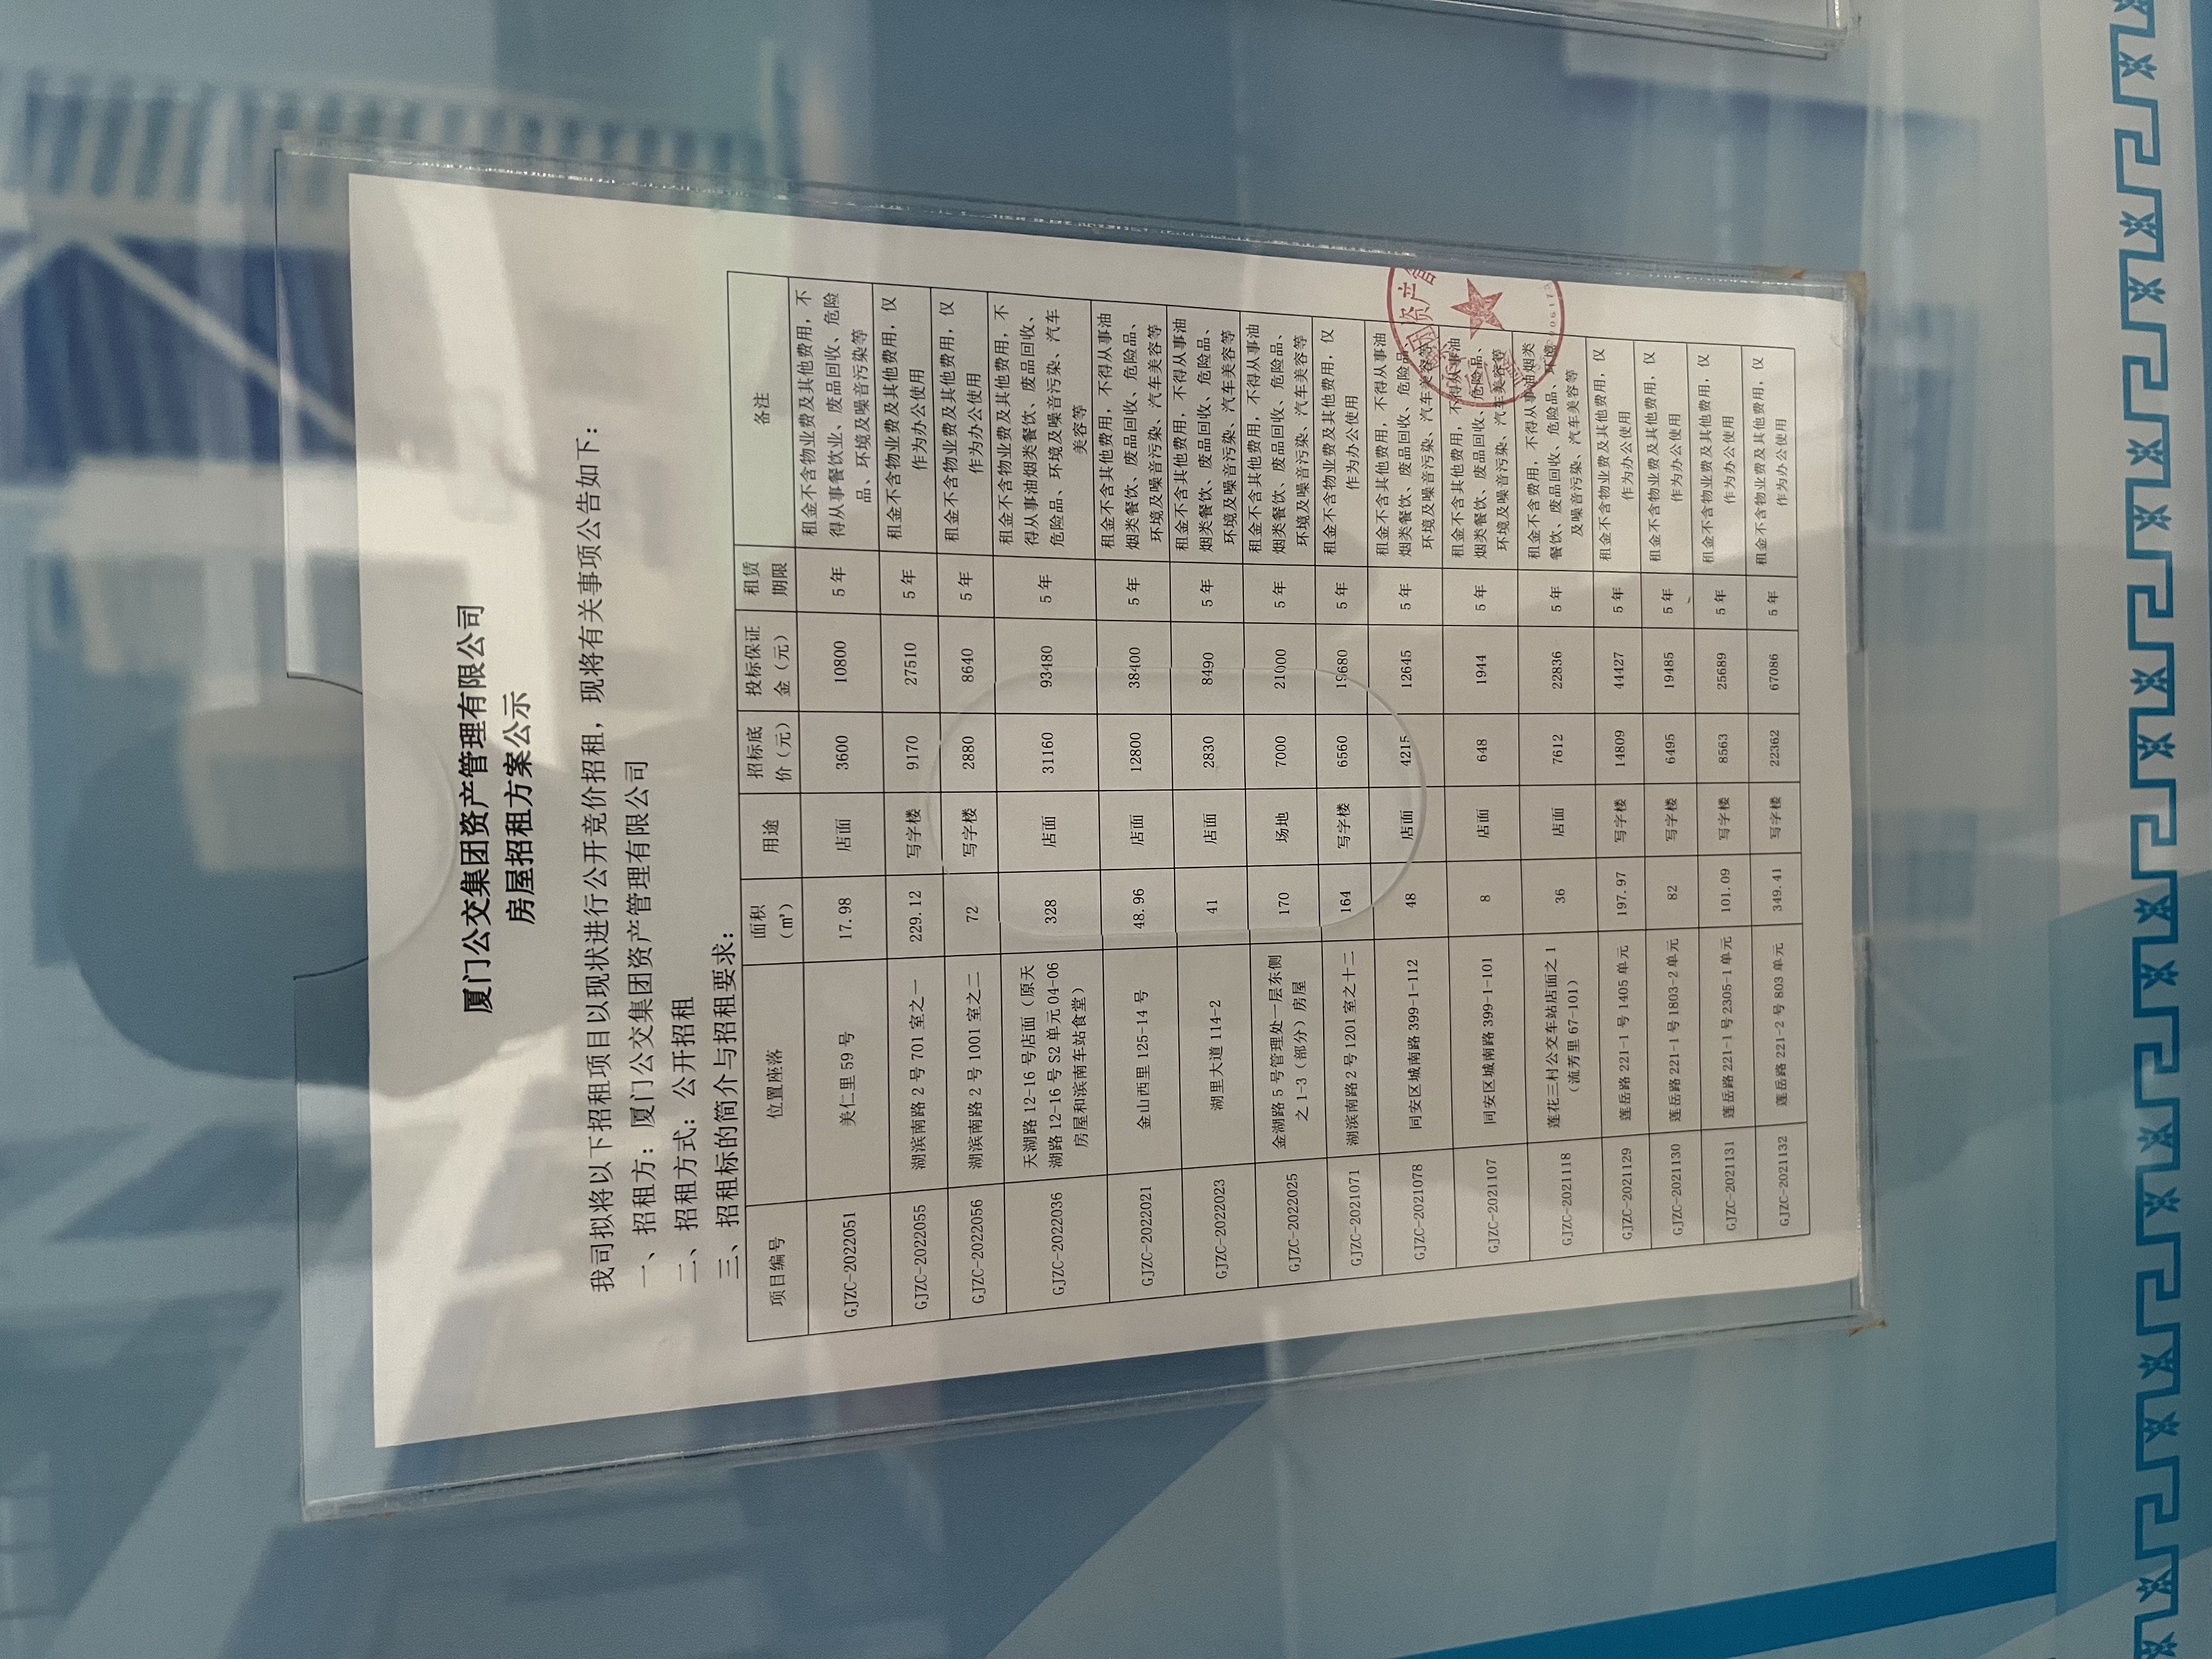 厦门公交集团资产管理有限公司
房屋招租方案公示
我司拟将以下招租项目以现状进行公开竞价招租，现将有关事项公告如下：
一、招租方：厦门公交集团资产管理有限公司
二、招租方式：公开招租
三、招租标的简介与招租要求：
项目编号 位置座落 面积（㎡） 用途 招标底价（元） 投标保证金（元） 租赁期限 备注
GJZC-2022051 美仁里 59 号 17.98 店面 3600 10800 5 年 租金不含物业费及其他费用，不得从事餐饮业、废品回收、危险品、环境及噪音污染等
GJZC-2022055 湖滨南路 2 号 701 室之一 229.12 写字楼 9170 27510 5 年 租金不含物业费及其他费用，仅作为办公使用
GJZC-2022056 湖滨南路 2 号 1001 室之二 72 写字楼 2880 8640 5 年 租金不含物业费及其他费用，仅作为办公使用
GJZC-2022036 天湖路 12-16 号店面（原天湖路 12-16 号 S2 单元 04-06 房屋和滨南车站食堂） 328 店面 31160 93480 5 年 租金不含物业费及其他费用，不得从事油烟类餐饮、废品回收、危险品、环境及噪音污染、汽车美容等
GJZC-2022021 金山西里 125-14 号 48.96 店面 12800 38400 5 年 租金不含其他费用，不得从事油烟类餐饮、废品回收、危险品、环境及噪音污染、汽车美容等
GJZC-2022023 湖里大道 114-2 41 店面 2830 8490 5 年 租金不含其他费用，不得从事油烟类餐饮、废品回收、危险品、环境及噪音污染、汽车美容等
GJZC-2022025 金湖路 5 号管理处一层东侧之 1-3（部分）房屋 170 场地 7000 21000 5 年 租金不含其他费用，不得从事油烟类餐饮、废品回收、危险品、环境及噪音污染、汽车美容等
GJZC-2021071 湖滨南路 2 号 1201 室之十二 164 写字楼 6560 19680 5 年 租金不含物业费及其他费用，仅作为办公使用
GJZC-2021078 同安区城南路 399-1-112 48 店面 4215 12645 5 年 租金不含其他费用，不得从事油烟类餐饮、废品回收、危险品、环境及噪音污染、汽车美容等
GJZC-2021107 同安区城南路 399-1-101 8 店面 648 1944 5 年 租金不含其他费用，不得从事油烟类餐饮、废品回收、危险品、环境及噪音污染、汽车美容等
GJZC-2021118 莲花三村公交车站店面之 1（流芳里 67-101） 36 店面 7612 22836 5 年 租金不含费用，不得从事油烟类餐饮、废品回收、危险品、环境及噪音污染、汽车美容等
GJZC-2021129 莲岳路 221-1 号 1405 单元 197.97 写字楼 14809 44427 5 年 租金不含物业费及其他费用，仅作为办公使用
GJZC-2021130 莲岳路 221-1 号 1803-2 单元 82 写字楼 6495 19485 5 年 租金不含物业费及其他费用，仅作为办公使用
GJZC-2021131 莲岳路 221-1 号 2305-1 单元 101.09 写字楼 8563 25689 5 年 租金不含物业费及其他费用，仅作为办公使用
GJZC-2021132 莲岳路 221-2 号 803 单元 349.41 写字楼 22362 67086 5 年 租金不含物业费及其他费用，仅作为办公使用